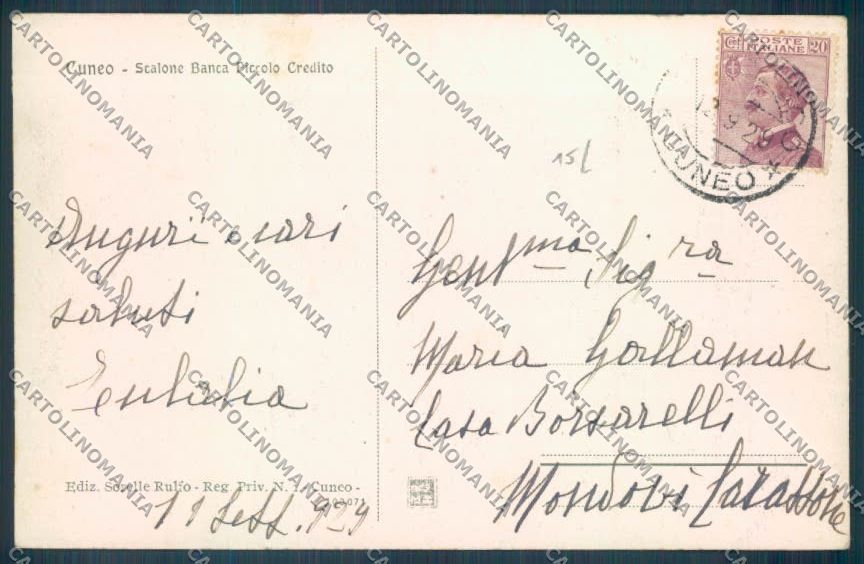 Cuneo - Scalone Banca Piccolo Credito
Auguri e cari
saluti
Ediz. Sorelle Rulfo - Reg. Priv. N. 1. Cuneo -
11 Sett. 929
Cmi 20
POSTE
ITALIANE
9 29
CUNEO
15/
Gent.ma Sig.ra
Maria
Casa Borsarelli
Mondovì Carassone
CARTOLINOMANIA